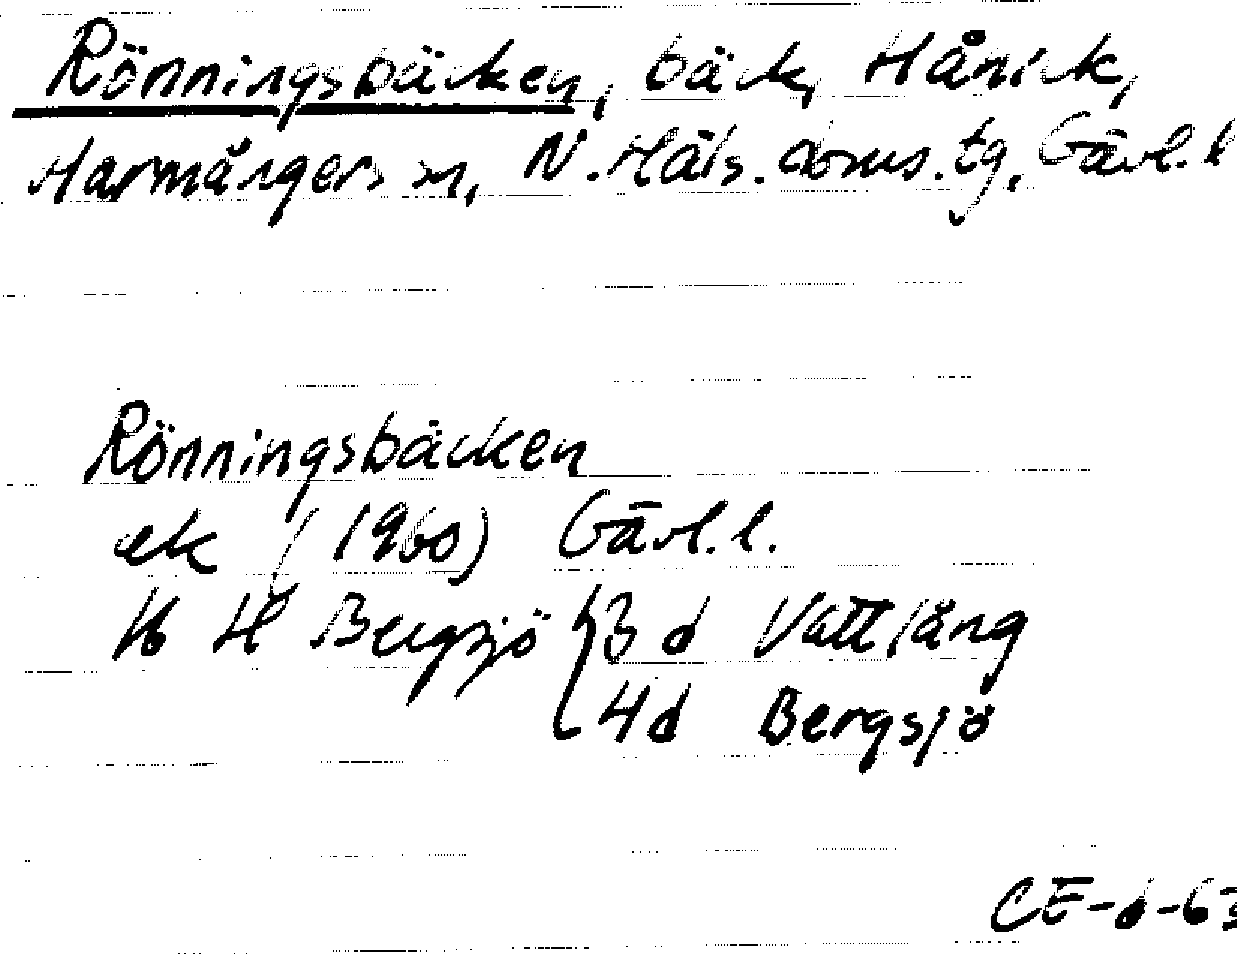 Rönningsbäcken, bäck, Hånick,
Harmångers sn, N. Häls. doms. tg, Gävl. l
Rönningsbäcken
ek (1960) Gävl. l.
16 H Bergsjö { 3 d Vattlång
4 d Bergsjö
CE-6-63